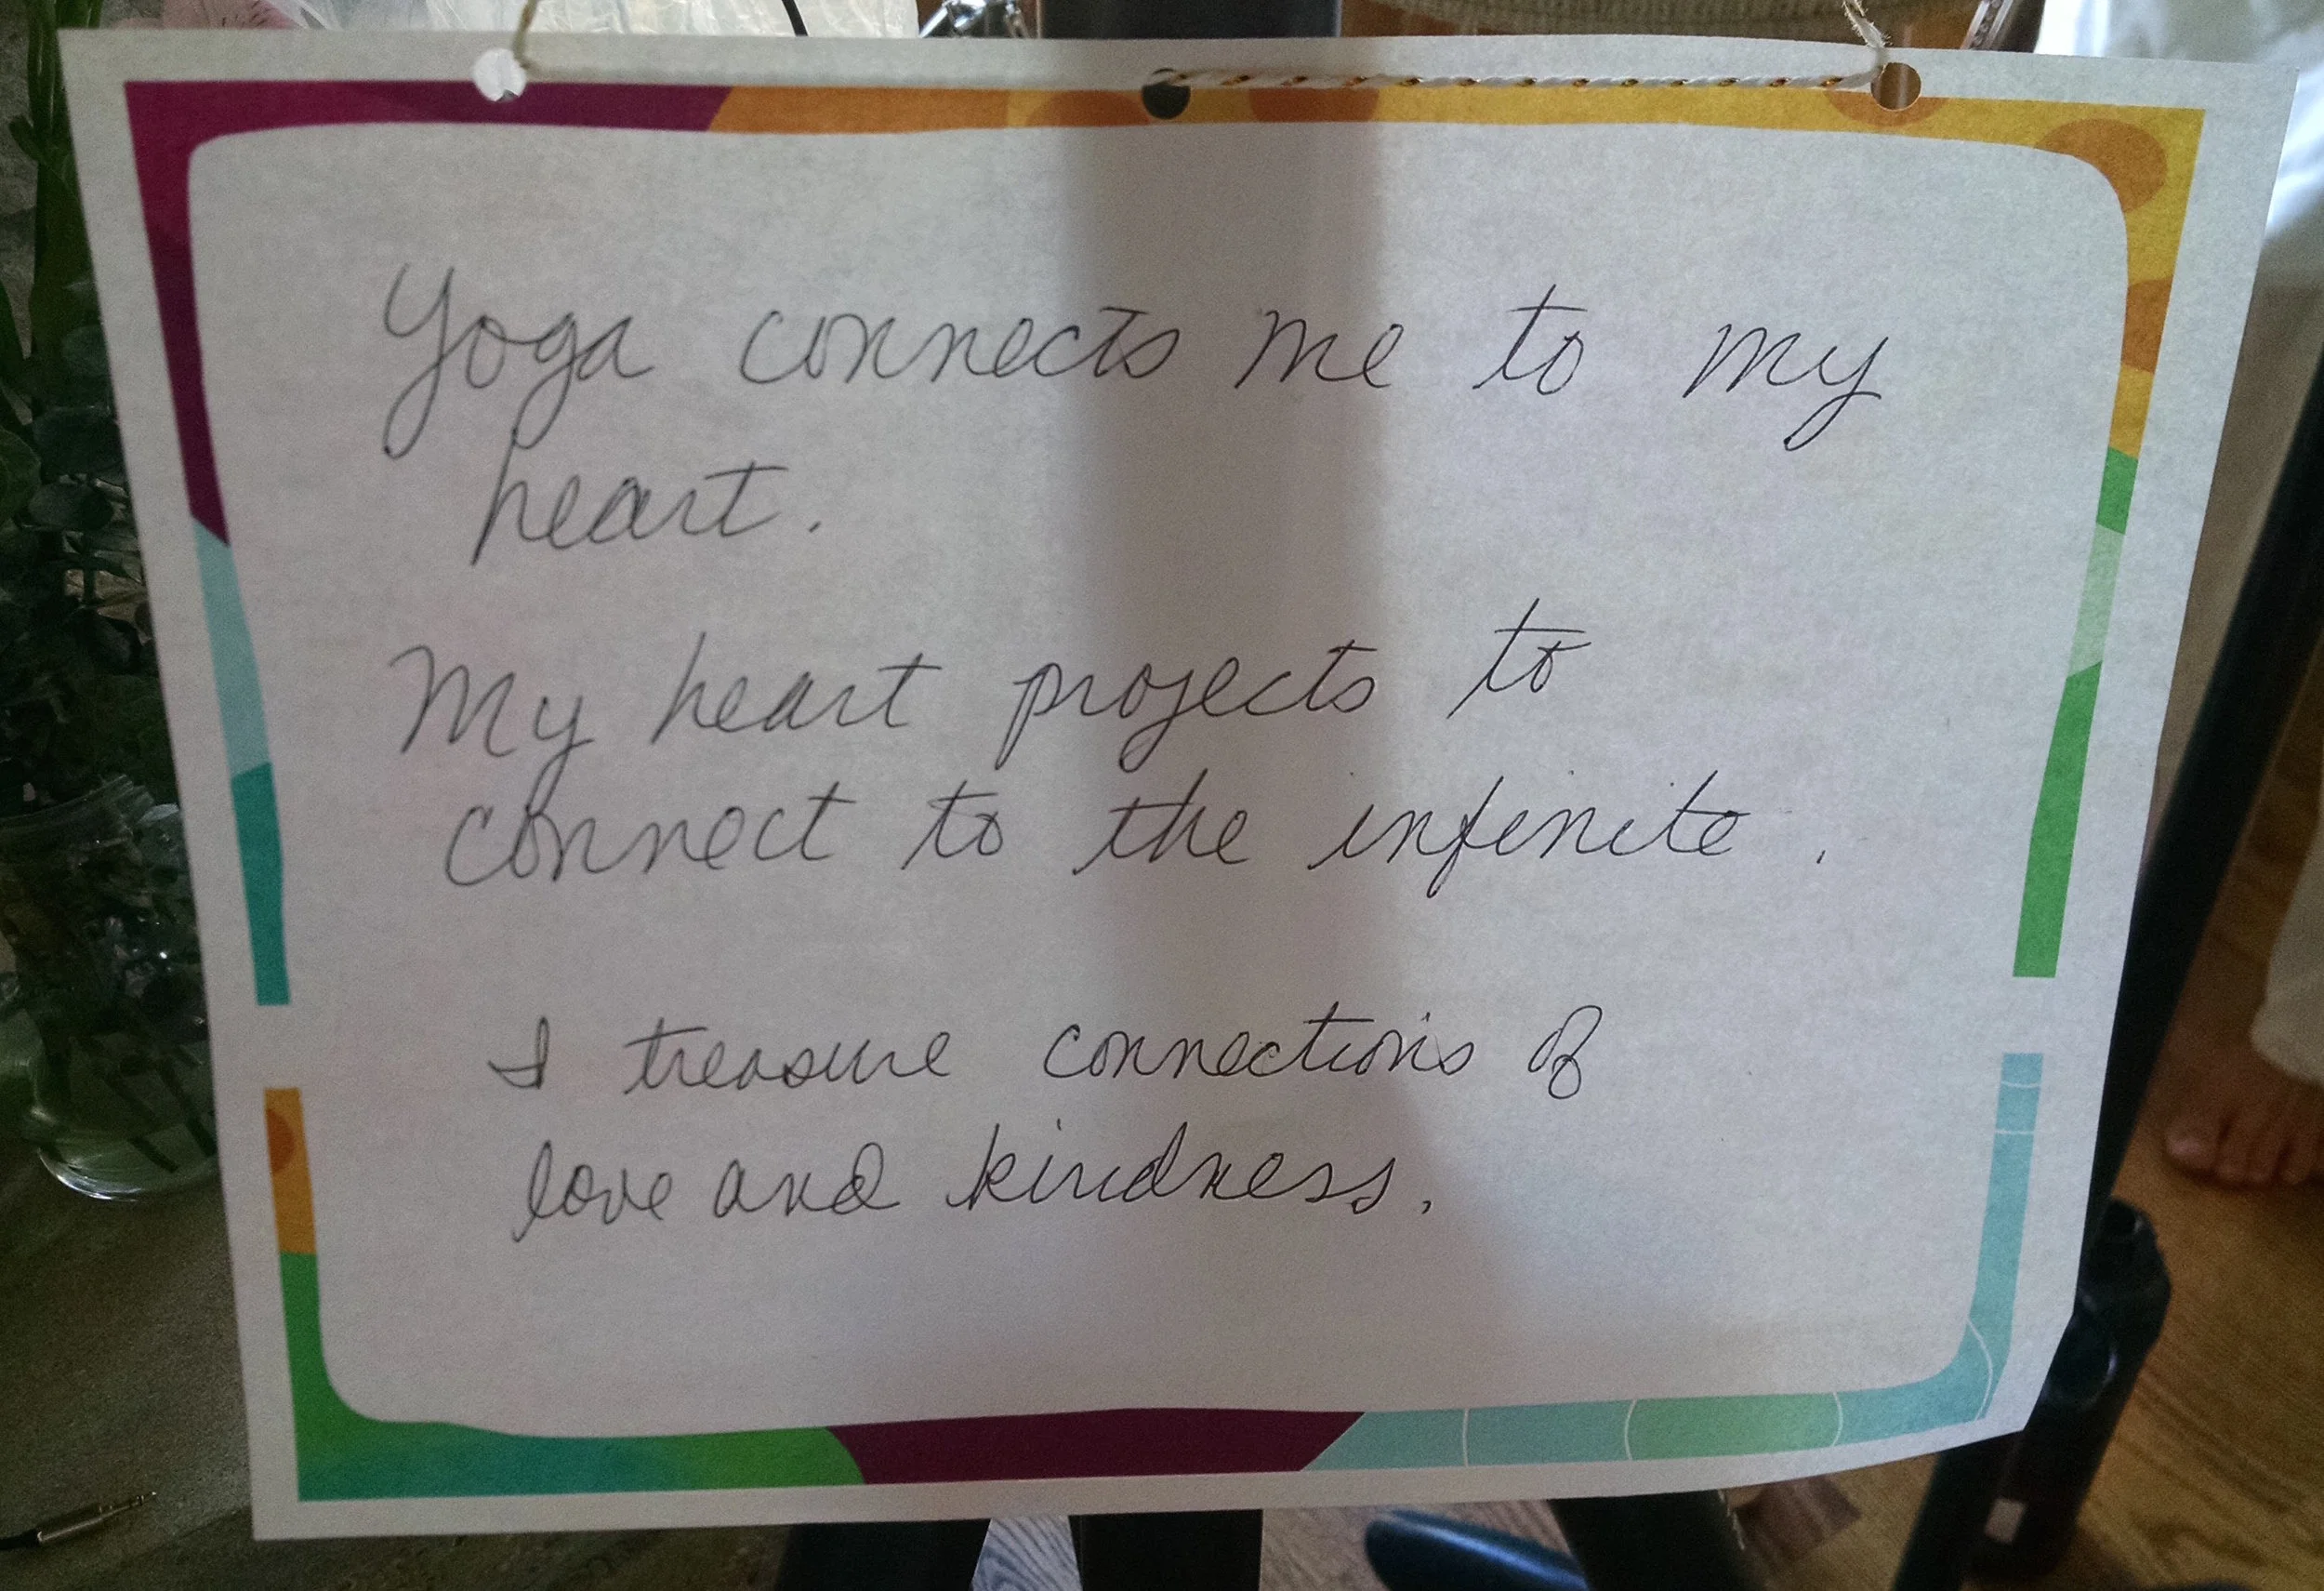 Yoga connects me to my
heart.
My heart projects to
connect to the infinite.
I treasure connections of
love and kindness.